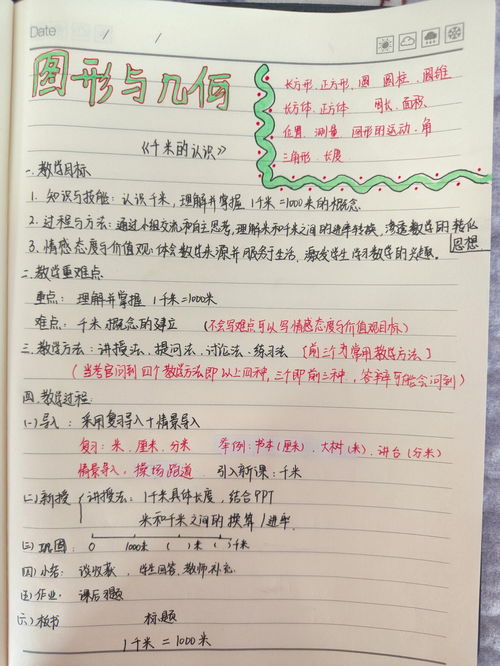 Date / /
图形与几何
长方形、正方形、圆 圆柱、圆锥
长方体、正方体 周长、面积
位置、测量 图形的运动、角
三角形、长度
《千米的认识》
一、教学目标
1. 知识与技能：认识千米，理解并掌握 1千米=1000米的概念
2. 过程与方法：通过小组交流和自主思考，理解米和千米之间的进率转换，渗透数学的转化
思想
3. 情感态度与价值观：体会数学来源并服务于生活，激发学生学习数学的兴趣。
二、教学重难点
重点：理解并掌握 1千米=1000米
难点：千米概念的建立 （不会写难点可以写情感态度与价值观目标）
三、教学方法：讲授法、提问法、讨论法、练习法 〔前三个为常用教学方法〕
（当考官问到四个教学方法即以上四种，三个即前三种，答辩可能会问到）
四、教学过程：
(一)导入：采用复习导入+情景导入
复习：米、厘米、分米 举例：书本（厘米）、大树（米）、讲台（分米）
情景导入：操场跑道 引入新课：千米
(二)新授 讲授法：1千米具体长度，结合PPT
米和千米之间的换算/进率
(三)巩固： 0 1000米 （ ）米 （ ）千米
(四)小结：谈收获，学生回答，教师补充
(五)作业：课后习题
(六)板书 标题
1千米=1000米